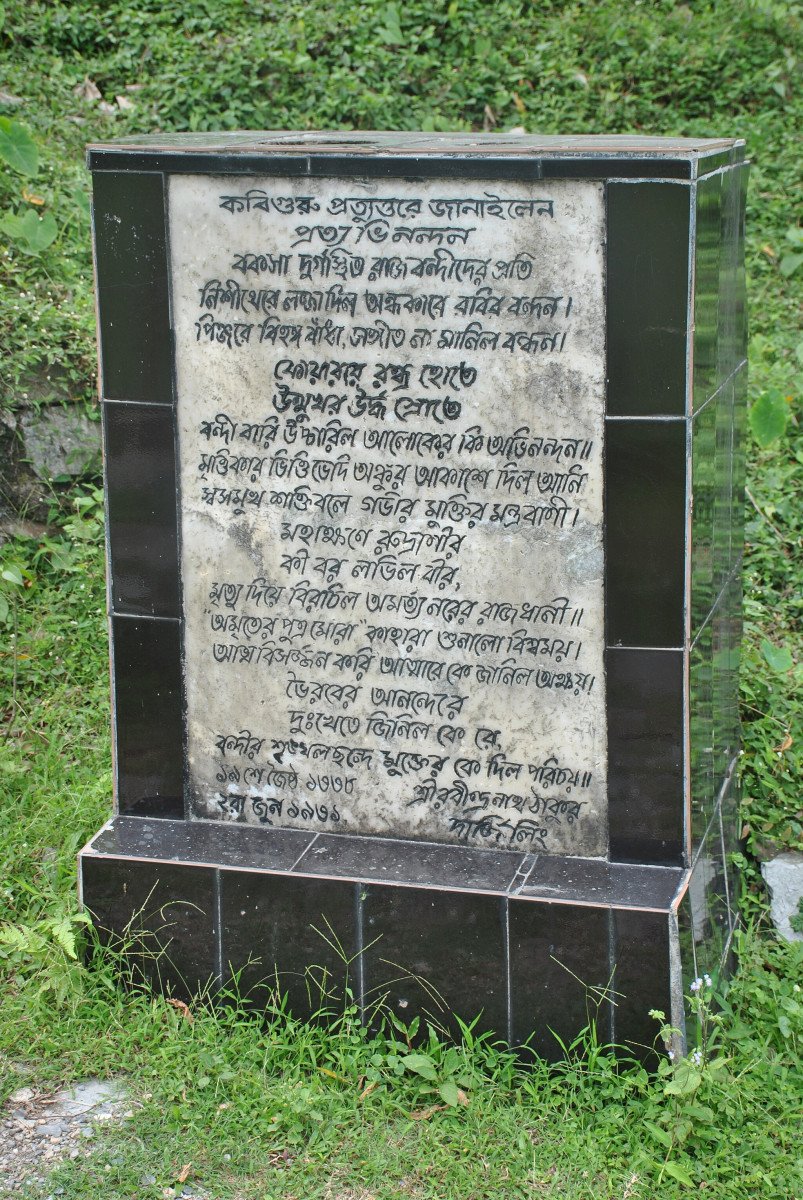 কবিগুরু প্রত্যুত্তরে জানাইলেন
প্রত্যভিনন্দন
বকসা দুর্গস্থিত রাজবন্দীদের প্রতি
নিশীথেরে লজ্জা দিল অন্ধকারে রবির বন্দন।
পিঞ্জরে বিহঙ্গ বাঁধা, সঙ্গীত না মানিল বন্ধন।
ফোয়ারার রন্ধ্র হোতে
উন্মুখর উর্দ্ধ স্রোতে
বন্দী বারি উচ্চারিল আলোকের কি অভিনন্দন॥
মৃত্তিকার ভিত্তি ভেদি অঙ্কুর আকাশে দিল আনি
স্বসমুখ শক্তিবলে গভীর মুক্তির মন্ত্রবাণী।
মহাক্ষণে রুদ্রাণীর
কী বর লভিল বীর,
মৃত্যু দিয়ে বিরচিল অমর্ত্য নরের রাজধানী॥
"অমৃতের পুত্র মোরা" কাহারা শুনালো বিশ্বময়।
আত্মবিসর্জ্জন করি আত্মারে কে জানিল অক্ষয়।
ভৈরবের আনন্দেরে
দুঃখেতে জিনিল কে রে,
বন্দীর শৃঙ্খলছন্দে মুক্তের কে দিল পরিচয়॥
১৯ শে জৈষ্ঠ ১৩৩৮
শ্রীরবীন্দ্রনাথ ঠাকুর
২রা জুন ১৯৩১.
দার্জ্জিলিং